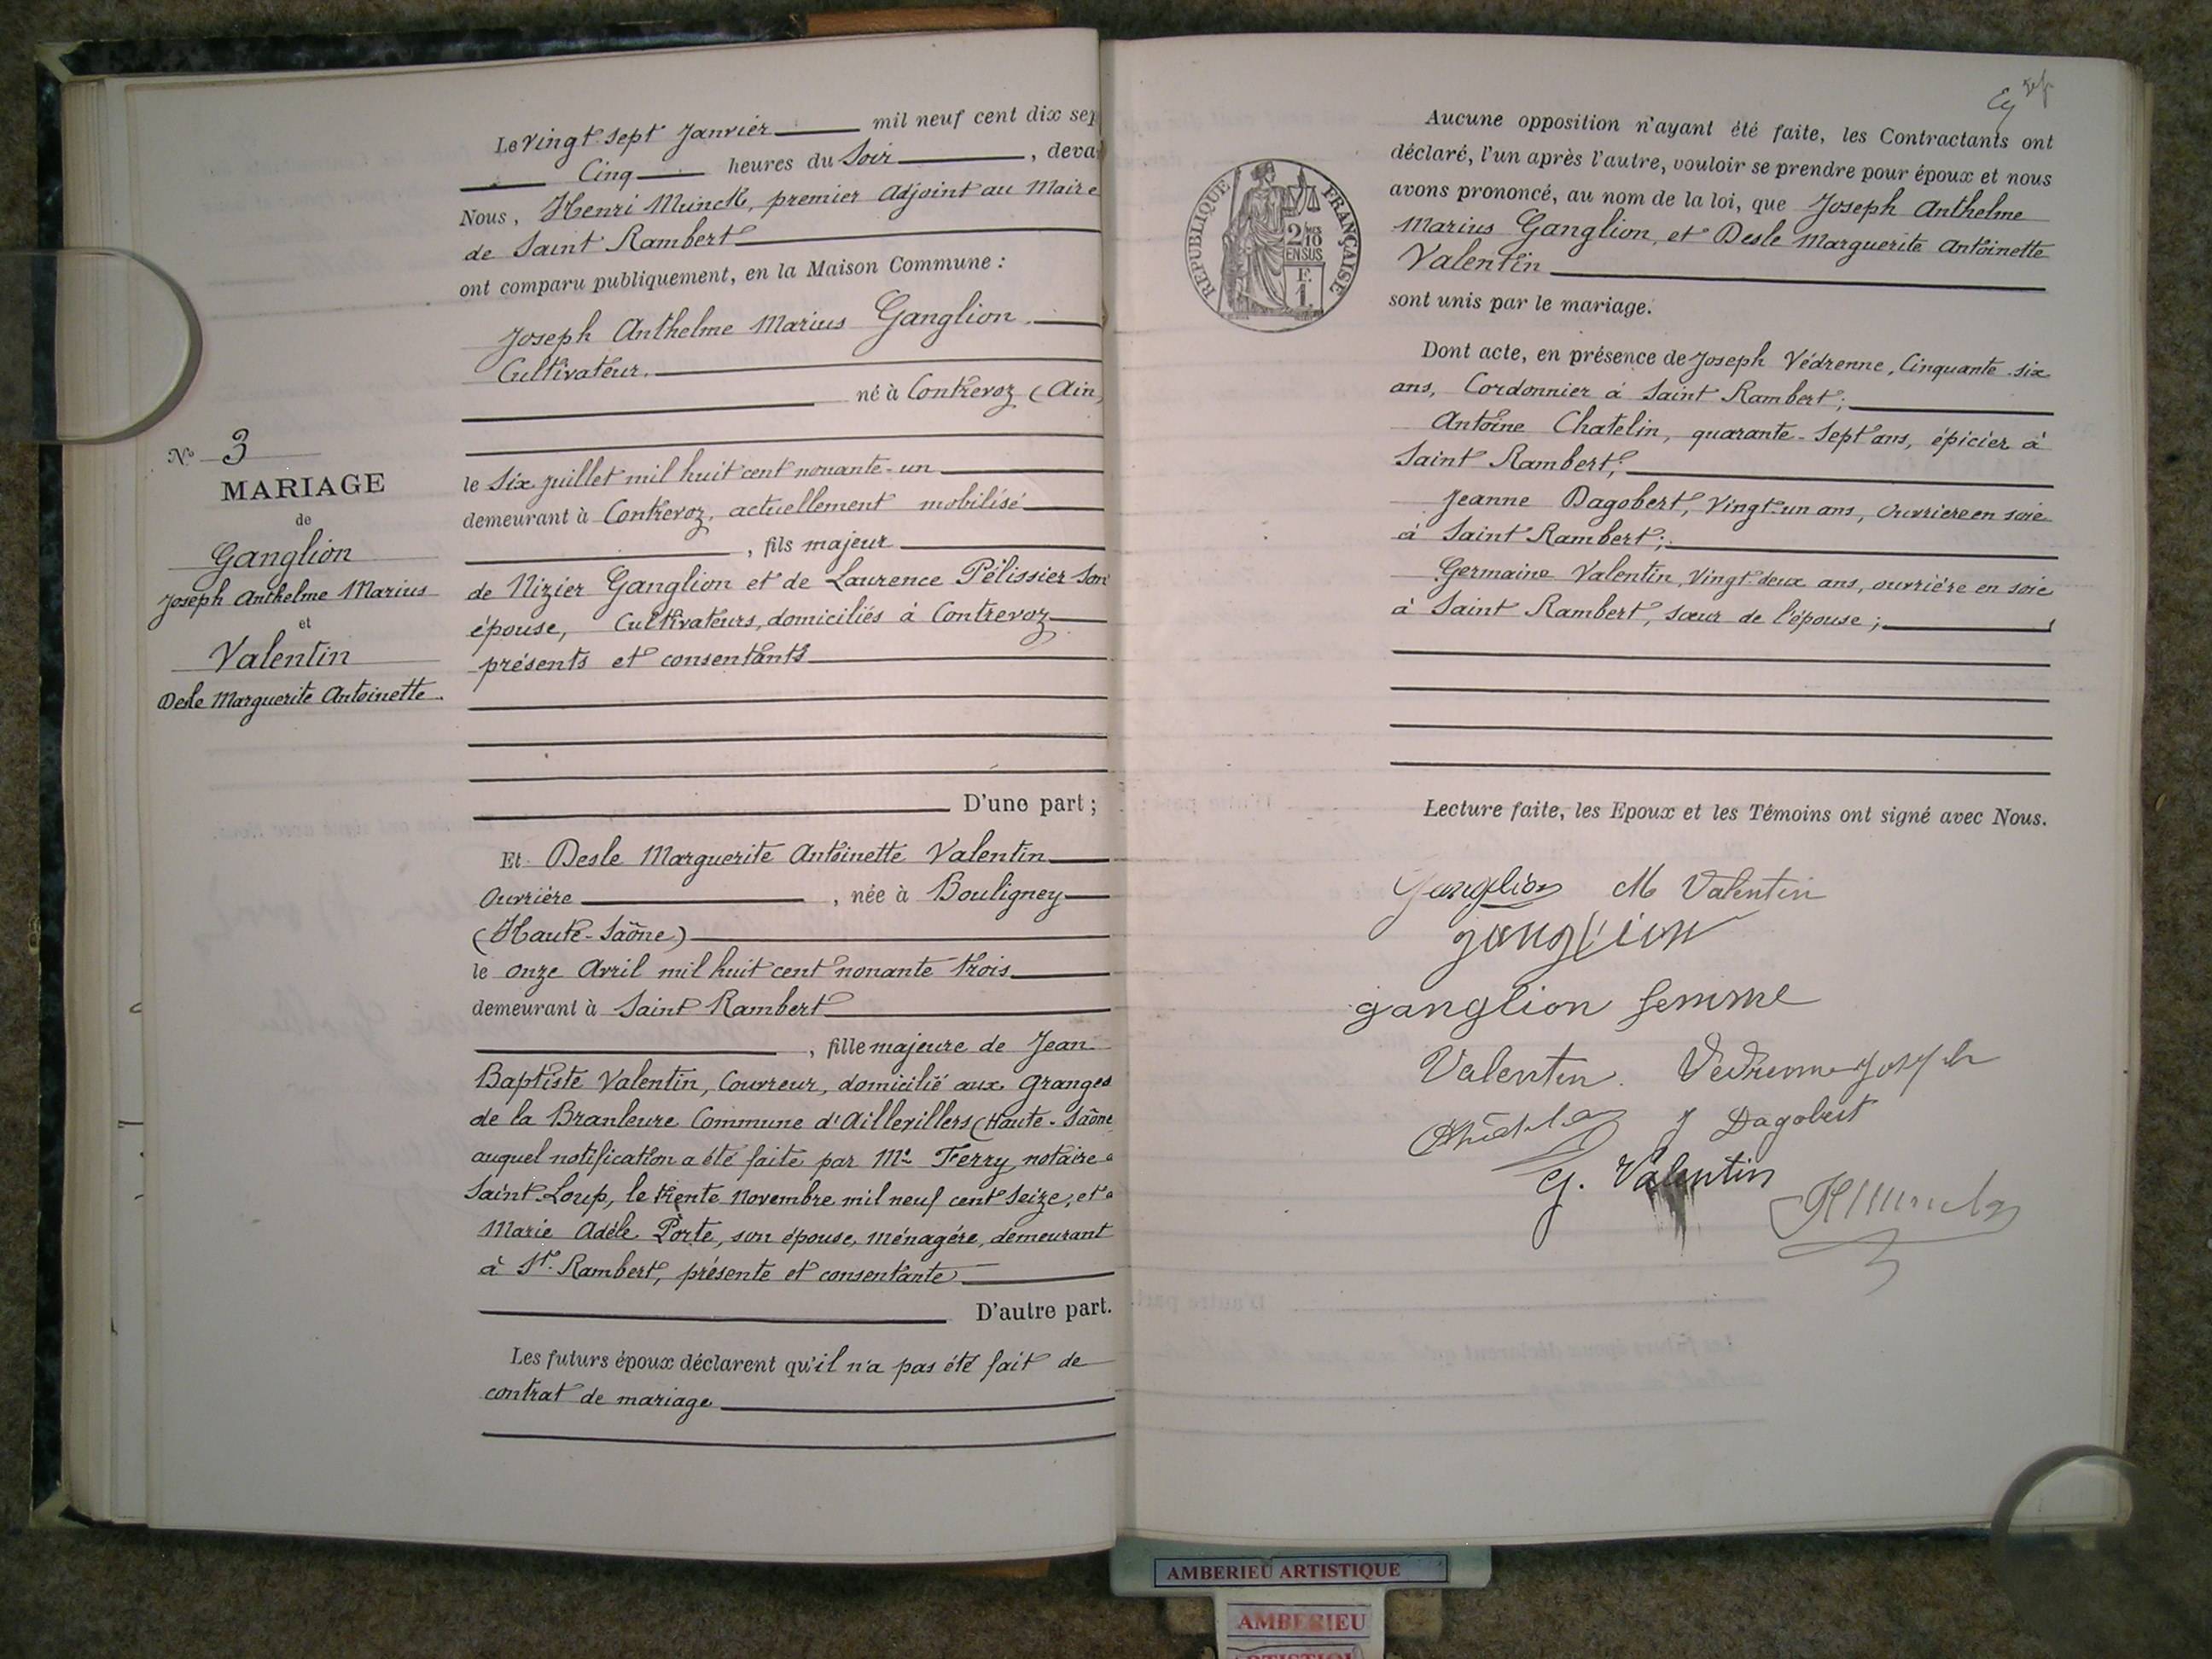 Le vingt sept Janvier mil neuf cent dix sep
Cinq heures du Soir, deva
Nous, Henri Munck, premier Adjoint au Maire
de Saint Rambert
ont comparu publiquement, en la Maison Commune :
Joseph Anthelme Marius Ganglion
Cultivateur.
né à Contrevoz (Ain)
le Six juillet mil huit cent nonante-un
demeurant à Contrevoz, actuellement mobilisé
, fils majeur
de Nizier Ganglion et de Laurence Pélissier son
épouse, Cultivateurs, domiciliés à Contrevoz
présents et consentants
D'une part ;
Et Desle Marguerite Antoinette Valentin
Ouvrière, née à Bouligney
(Haute-Saône)
le onze Avril mil huit cent nonante trois
demeurant à Saint Rambert
, fille majeure de Jean
Baptiste Valentin, Couvreur, domicilié aux Granges
de la Branleure Commune d'Aillevillers (Haute-Saône
auquel notification a été faite par Me Ferry, notaire à
Saint-Loup, le trente Novembre mil neuf cent seize, et à
Marie Adèle Porte, son épouse, ménagère, demeurant
à St. Rambert, présente et consentante
D'autre part.
Les futurs époux déclarent qu'il n'a pas été fait de
contrat de mariage
No 3
MARIAGE
de
Ganglion
Joseph Anthelme Marius
et
Valentin
Desle Marguerite Antoinette
RÉPUBLIQUE FRANÇAISE
2/10
EN SUS
F.
1.
Aucune opposition n'ayant été faite, les Contractants ont
déclaré, l'un après l'autre, vouloir se prendre pour époux et nous
avons prononcé, au nom de la loi, que Joseph Anthelme
Marius Ganglion, et Desle Marguerite Antoinette
Valentin
sont unis par le mariage.
Dont acte, en présence de Joseph Védrenne, Cinquante-six
ans, Cordonnier à Saint Rambert ;
Antoine Chatelin, quarante-Sept ans, épicier à
Saint Rambert ;
Jeanne Dagobert, Vingt-un ans, Ouvrière en soie
à Saint Rambert ;
Germaine Valentin, Vingt-deux ans, ouvrière en soie
à Saint Rambert, sœur de l'épouse ;
Lecture faite, les Epoux et les Témoins ont signé avec Nous.
Ganglion M Valentin
ganglion
ganglion femme
Valentin. Vedrenne Joseph
J Dagobert
G. Valentin
HMunck
AMBERIEU ARTISTIQUE
AMBERIEU